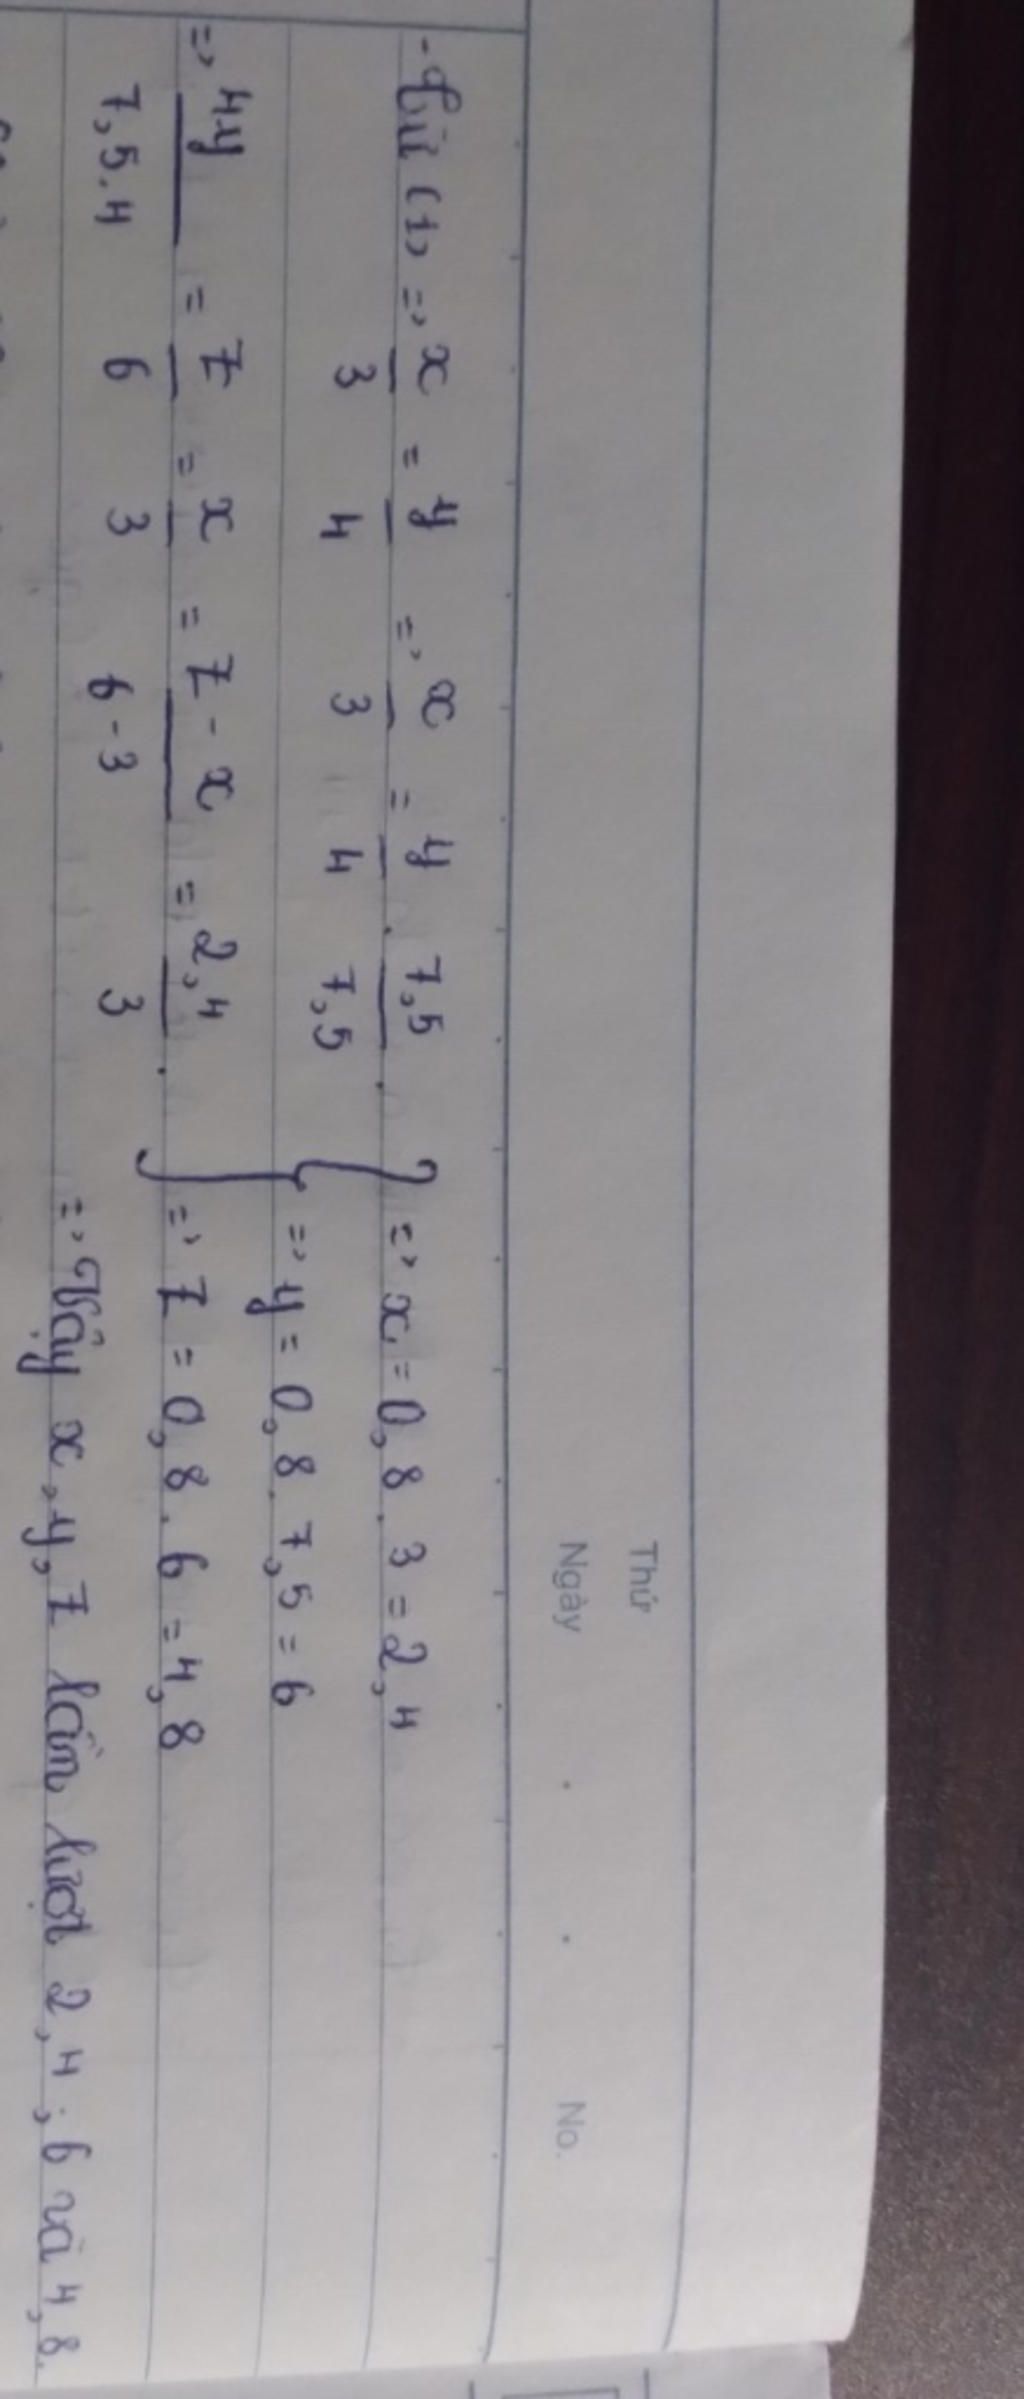 Thứ
Ngày . . No.
- Từ (1) => x/3 = y/4 => x/3 = y/4 . 7,5/7,5 . => x = 0,8 . 3 = 2,4
=> y = 0,8 . 7,5 = 6
=> 4y/7,5.4 = z/6 = x/3 = z - x/6 - 3 = 2,4/3 . => z = 0,8 . 6 = 4,8
=> Vậy x, y, z lần lượt 2,4 ; 6 và 4,8.